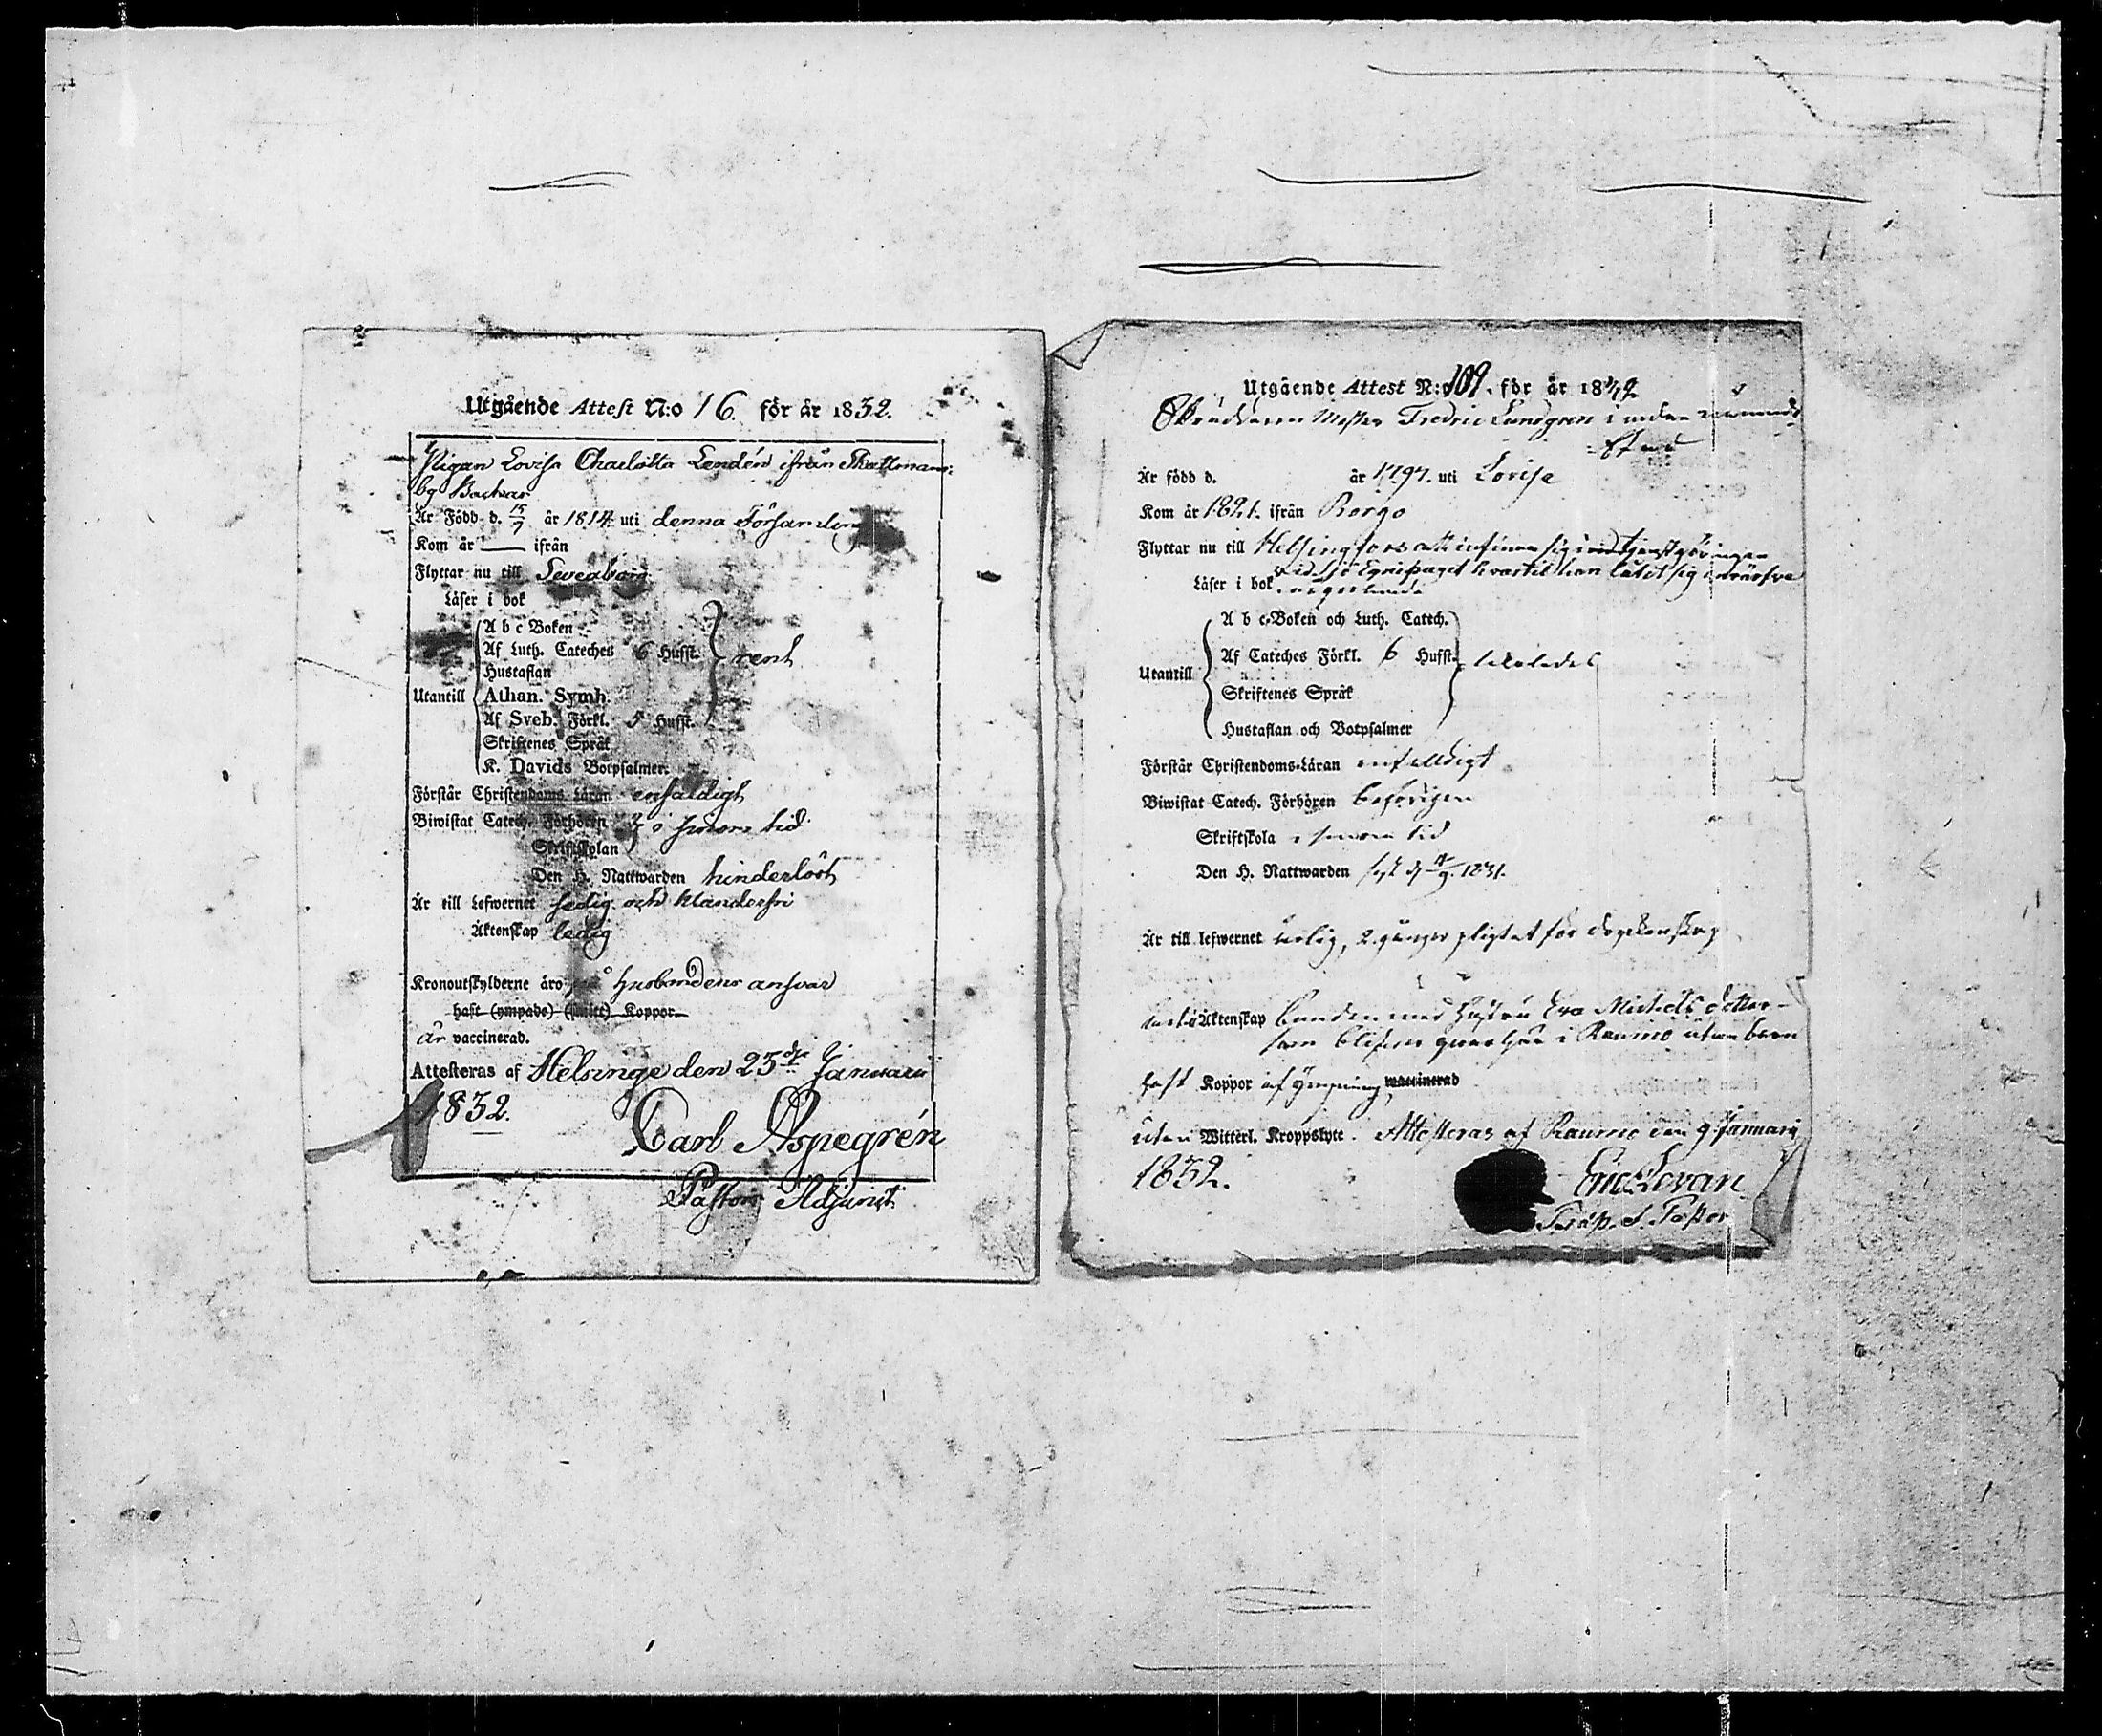 Utgående Attest N:o 16. för år 1832.
Pigan Lovisa Charlotta Lendén ifrån
by Backas
Är Född d. 15/7 år 1814 uti denna Församling
Kom år — ifrån
Flyttar nu till Sveaborg
Läser i bok
A b c Boken
Af Luth. Cateches 6 Hufst. rent
Hustaflan
Utantill Athan. Symb.
Af Sveb. Förkl. 5 Hufst.
Skriftenes Språk
K. Davids Botpsalmer.
Förstår Christendoms Läran enfaldigt
Biwistat Catech. Förhören i sinom tid
Skriftskolan
Den H. Nattwarden hinderlöst
Är till Lefwernet sedig och klanderfri
Äktenskap ledig
Kronoutskylderne äro på Husbondens ansvar
haft (ympade) (smitt) Koppor
är vaccinerad.
Attesteras af Helsinge den 25de Januarii
1832.
Carl Aspegrén
Pastors Adjunct
Utgående Attest N:o 109. för år 18
Skräddaren Mester Fredric Lundgren i
Är född d. år 1797. uti Lovisa
Kom år 1821. ifrån Borgo
Flyttar nu till Helsingfors att infinna sig
vid Sjö Equipaget hvartil han låtit sig
Läser i bok
A b c-Boken och Luth. Catech.
Af Cateches Förkl. 6 Hufst.
Utantill
Skriftenes Språk
Hustaflan och Botpsalmer
Förstår Christendoms-Läran enfaldigt
Biwistat Catech. Förhören behörigen
Skriftskola i sinom tid
Den H. Nattwarden sist d. 1831.
Är till lefwernet 2 gånger pligtat för dryckenskap
Äktenskap bunden med Hustru Eva Michels dotter
som blifver qvar här i Raumo utan barn
haft Koppor af ympning, vaccinerad
utan Witterl. Kroppslyte. Attesteras af Raumo den 9 Januarii
1832.